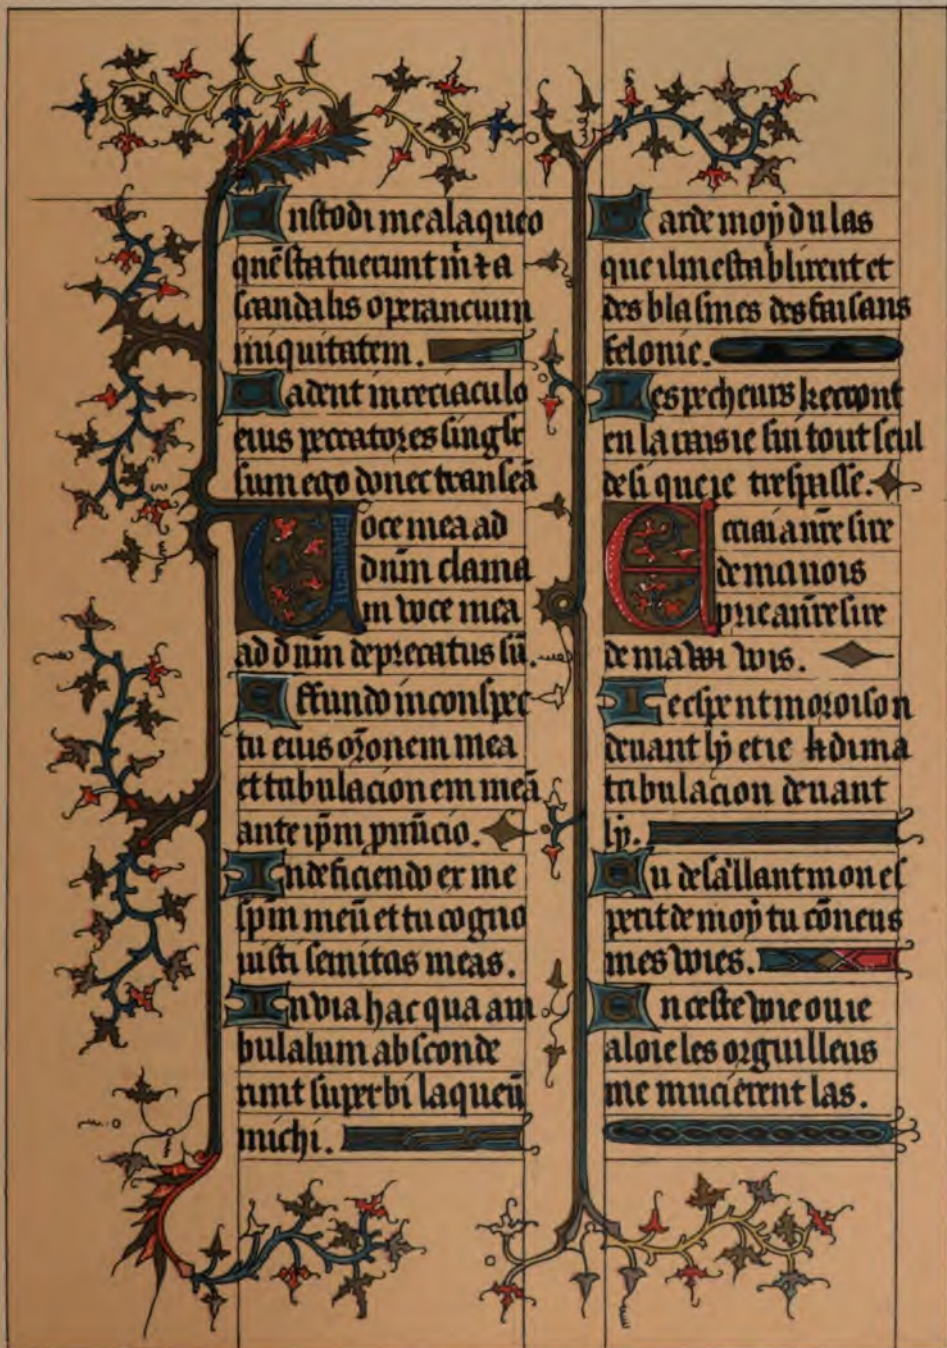 Custodi me a laqueo
quē statuerunt m̄ ⁊ a
scandalis operancium
iniquitatem.
Cadent in reciaculo
eius peccatores singlr
sum ego donec transeā
Voce mea ad
dn̄m clama
ui voce mea
ad dn̄m deprecatus sū.
Effundo in conspec
tu eius or̄onem mea
et tribulacionem meā
ante ip̄m pnūcio.
In deficiendo ex me
sp̄m meū et tu cogno
uisti semitas meas.
In via hac qua am
bulabum absconde
runt superbi laqueū
michi.
Garde moy du las
que il mestablirent et
des blasmes des faisans
felonie.
Les pecheurs kerront
en la raisie sui tout seul
desi que je trespasse.
E criai a nr̄e sire
de ma uois
prie a nr̄e sire
de ma vois.
Ie espent moroison
deuant ly et ie
tribulacion deuant
ly.
En desallant mon es
perit de moy tu cōneus
mes voies.
En ceste voie ou ie
aloie les orguilleus
me mucierent las.